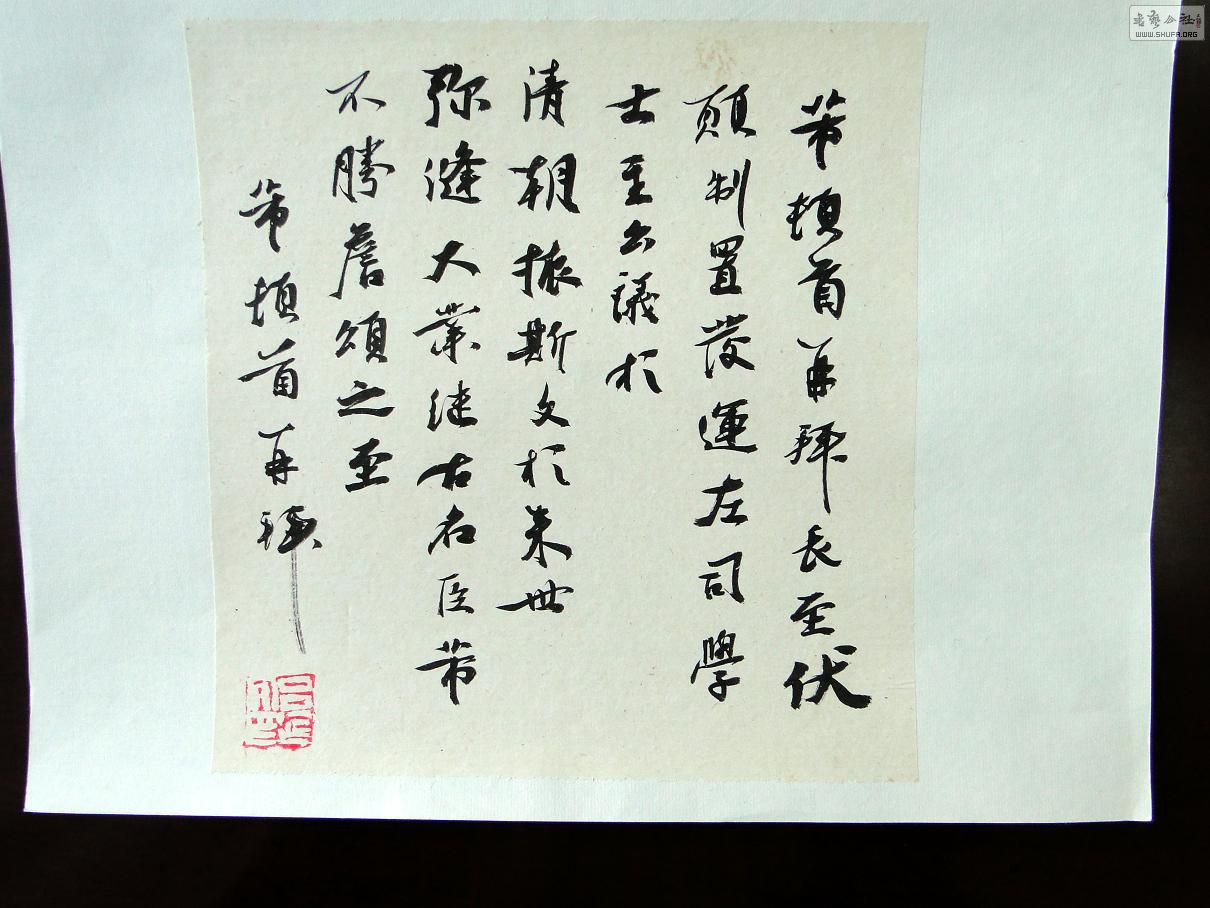 芾頓首再拜長至伏
願制置發運左司學
士主公議於
清朝振斯文於來世
弥縫大業继古名臣芾
不勝詹頌之至
芾頓首再拜
書藝公社
WWW.SHUFA.ORG